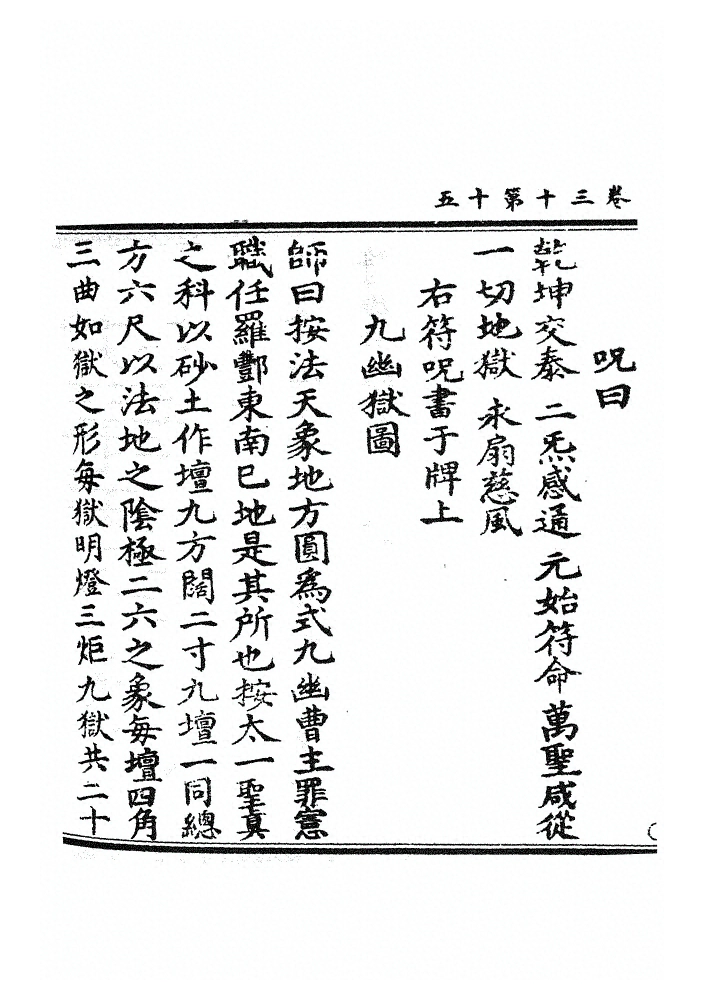 卷三十第十五
呪曰
乾坤交泰 二炁感通 元始符命 萬聖咸從
一切地獄 永扇慈風
右符呪書于牌上
九幽獄圖
師曰按法天象地方圓為式九幽曹主罪憲
職任羅酆東南巳地是其所也按太一聖真
之科以砂土作壇九方闊二寸九壇一同總
方六尺以法地之陰極二六之象每壇四角
三曲如獄之形每獄明燈三炬九獄共二十